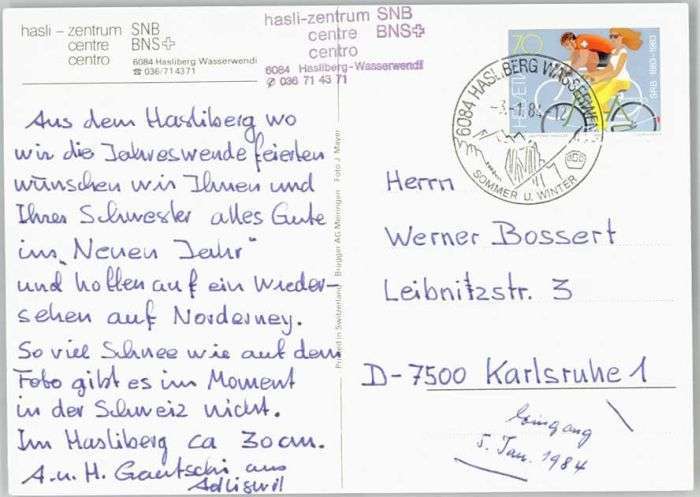 hasli-zentrum SNB
centre BNS
centro
6084 Hasliberg Wasserwendi
☎ 036/71 43 71
hasli-zentrum SNB
centre BNS
centro
6084 Hasliberg-Wasserwendi
036 71 43 71
70
HELVETIA
SRB 1883-1983
6084 HASLIBERG WASSERWENDI
-3.-1.84.-12
SOMMER U. WINTER
Aus dem Hasliberg wo
wir die Jahreswende feierten
wünschen wir Ihnen und
Ihrer Schwester alles Gute
im „Neuen Jahr"
und hoffen auf ein Wieder-
sehen auf Norderney.
So viel Schnee wie auf dem
Foto gibt es im Moment
in der Schweiz nicht.
Im Hasliberg ca 30cm.
A. u. H. Gautschi aus
Adliswil
Printed in Switzerland Brügger AG Meiringen Foto J. Mayer
Herrn
Werner Bossert
Leibnitzstr. 3
D-7500 Karlsruhe 1
Eingang
5. Jan. 1984